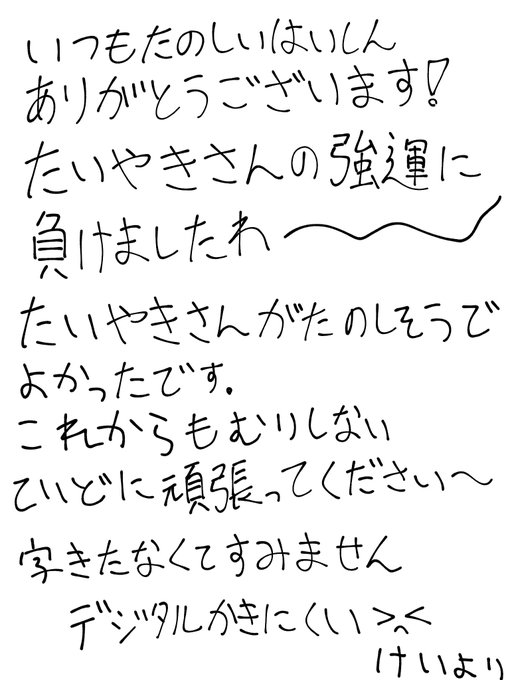 いつもたのしいはいしん
ありがとうございます!
たいやきさんの強運に
負けましたわ〜
たいやきさんがたのしそうで
よかったです.
これからもむりしない
ていどに頑張ってください〜
字きたなくてすみません
デジタルかきにくい>^<
けいより